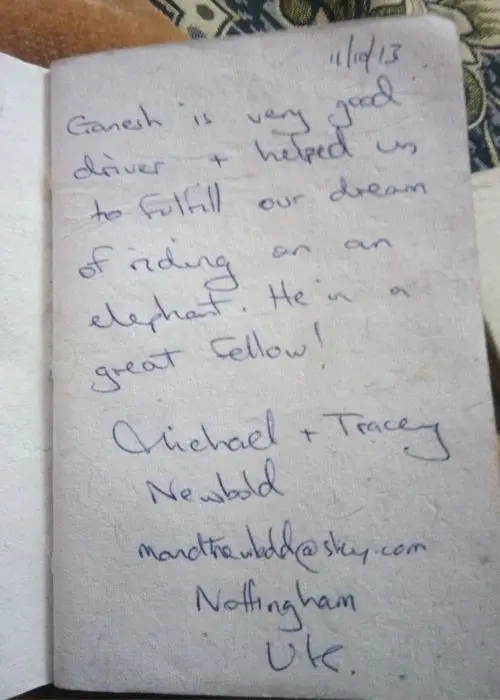 11/10/13
Ganesh is very good
driver + helped us
to fulfill our dream
of riding on an
elephant. He is a
great fellow!
Michael + Tracey
Newbold
mandtnewbold@sky.com
Nottingham
UK.